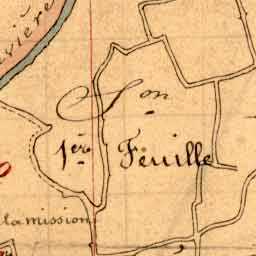 ivière
Son
1ère Feuille
la mission